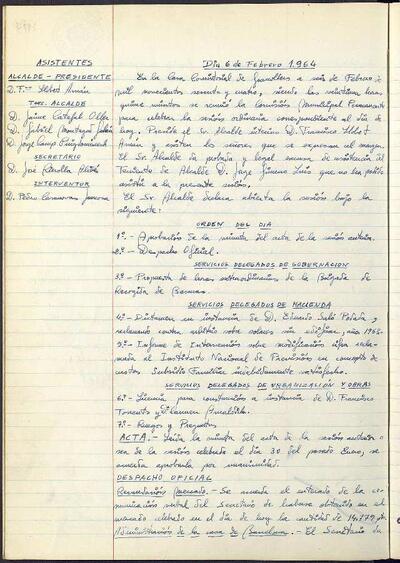 ASISTENTES
ALCALDE - PRESIDENTE
D. Fco Llobet Arnán
TNEC. ALCALDE
D. Jaime Catafal
D. Gabriel
D. Jorge Camp
SECRETARIO
D. José
INTERVENTOR
D. Pedro
Día 6 de Febrero 1.964
En la Casa Consistorial de Granollers a seis de Febrero de
mil novecientos sesenta y cuatro, siendo las veintiuna horas
quince minutos se reunió la Comisión Municipal Permanente
para celebrar la sesión ordinaria correspondiente al día de
hoy. Preside el Sr. Alcalde interino D. Francisco Llobet
Arnán y asisten los señores que se expresan al margen.
El Sr. Alcalde da probada y legal excusa de asistencia del
Teniente de Alcalde D. Jorge Jimeno que no ha podido
asistir a la presente sesión.
El Sr. Alcalde declara abierta la sesión bajo la
siguiente:
ORDEN DEL DIA
1º.- Aprobación de la minuta del acta de la sesión anterior.
2º.- Despacho Oficial.
SERVICIOS DELEGADOS DE GOBERNACION
3º.- Propuesta de horas extraordinarias de la Brigada de
Recogida de Basuras.
SERVICIOS DELEGADOS DE HACIENDA
4º.- Dictamen en instancia de D. Eduardo
reclamando contra arbitrio sobre solares sin edificar, año 1963.
5º.- Informe de Intervención sobre modificación cifra recla-
mada al Instituto Nacional de Previsión en concepto de
cuotas Subsidio Familiar indebidamente satisfechas.
SERVICIOS DELEGADOS DE URBANIZACIÓN Y OBRAS
6º.- Licencia para construcción a instancia de D. Francisco
Torrents y Dª Carmen
7º.- Ruegos y Preguntas
ACTA.- Leída la minuta del acta de la sesión anterior o
sea de la sesión celebrada el día 30 del pasado Enero, se
acuerda aprobarla por unanimidad.
DESPACHO OFICIAL
Recaudación mercado.- Se acuerda el enterado de la co-
municación verbal del Secretario de haberse obtenido en el
mercado celebrado en el día de hoy la cantidad de 14.779 pts
Administración de la casa de Barcelona.- El Secretario da